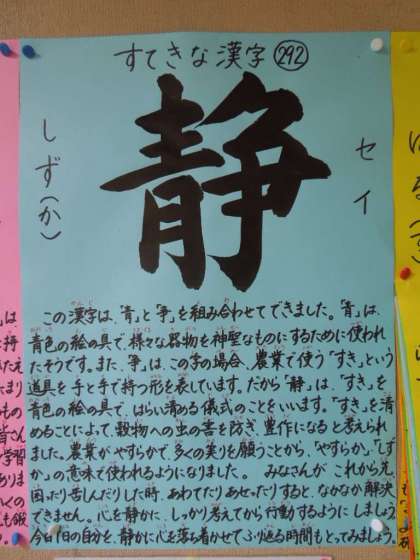 すてきな漢字 292
静
しず(か)
セイ
この漢字は、「青」と「争」を組み合わせてできました。「青」は、
青色の絵の具で、様々な器物を神聖なものにするために使われ
たそうです。また、「争」は、この字の場合、農業で使う「すき」という
道具を手と手で持つ形を表しています。だから「静」は、「すき」を
青色の絵の具で、はらい清める儀式のことをいいます。「すき」を清
めることによって、穀物への虫の害を防ぎ、豊作になると考えられ
ました。農業がやすらかで、多くの実りを願うことから、「やすらか」、「しず
か」の意味で使われるようになりました。 みなさんが、これから先、
困ったり苦しんだりした時、あわてたりあせったりすると、なかなか解決
できません。心を静かに、しっかり考えてから行動するようにしましょう。
今日1日の自分を、静かに心を落ち着かせてふり返る時間もとってみましょう。